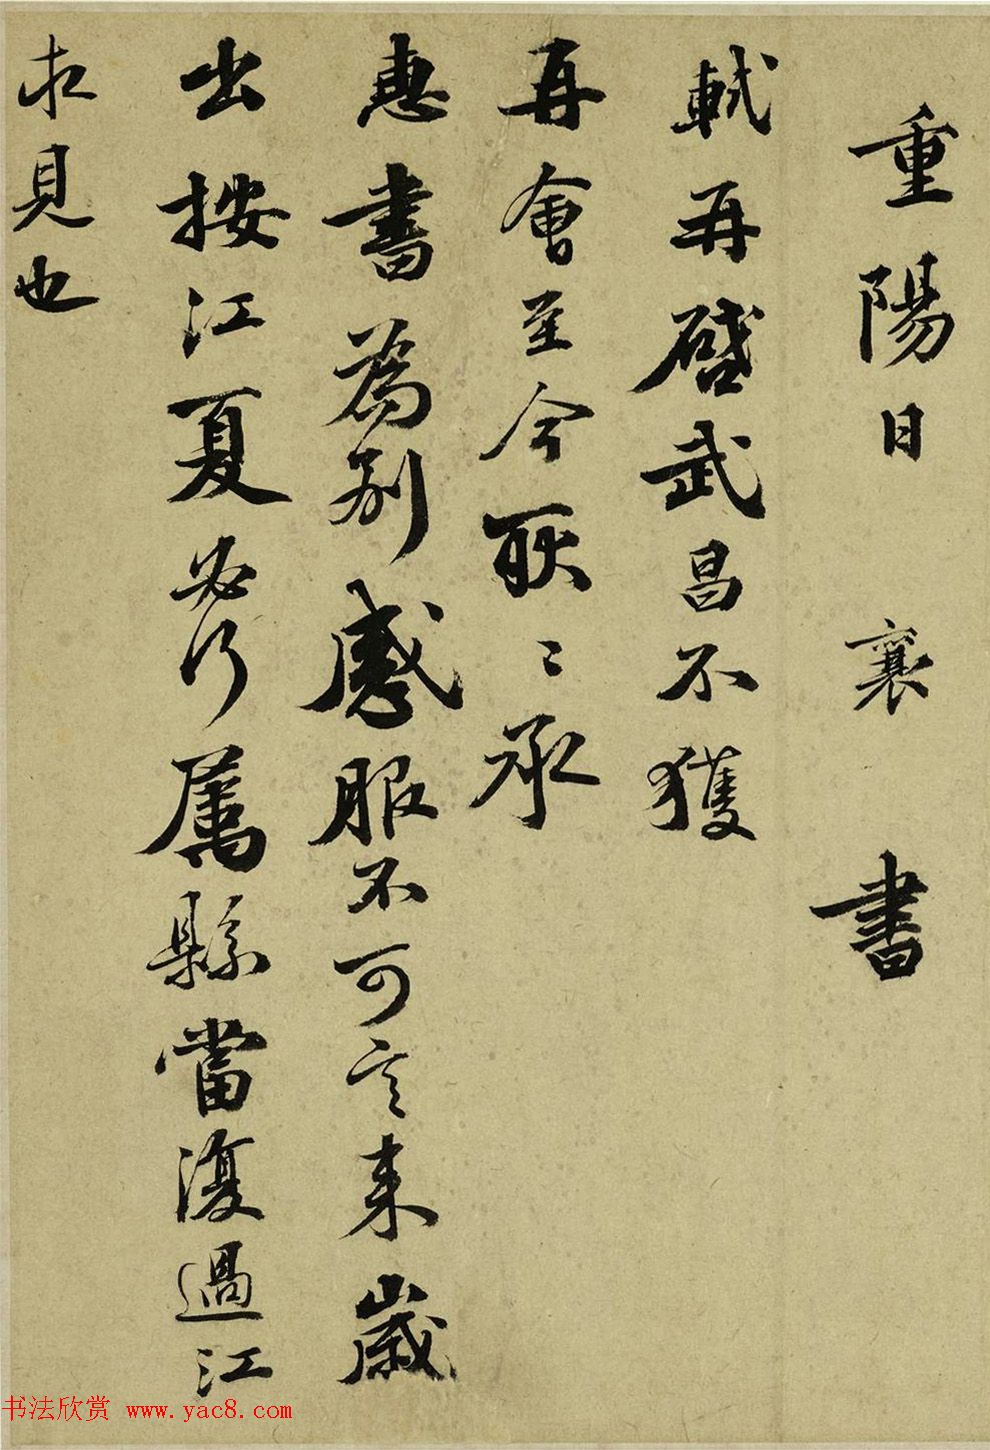 重陽日襄書
軾再啓武昌不獲
再會至今耿〻承
惠書為别感服不可言来歲
出按江夏必行属縣當復過江
求見也
书法欣赏 www.yac8.com